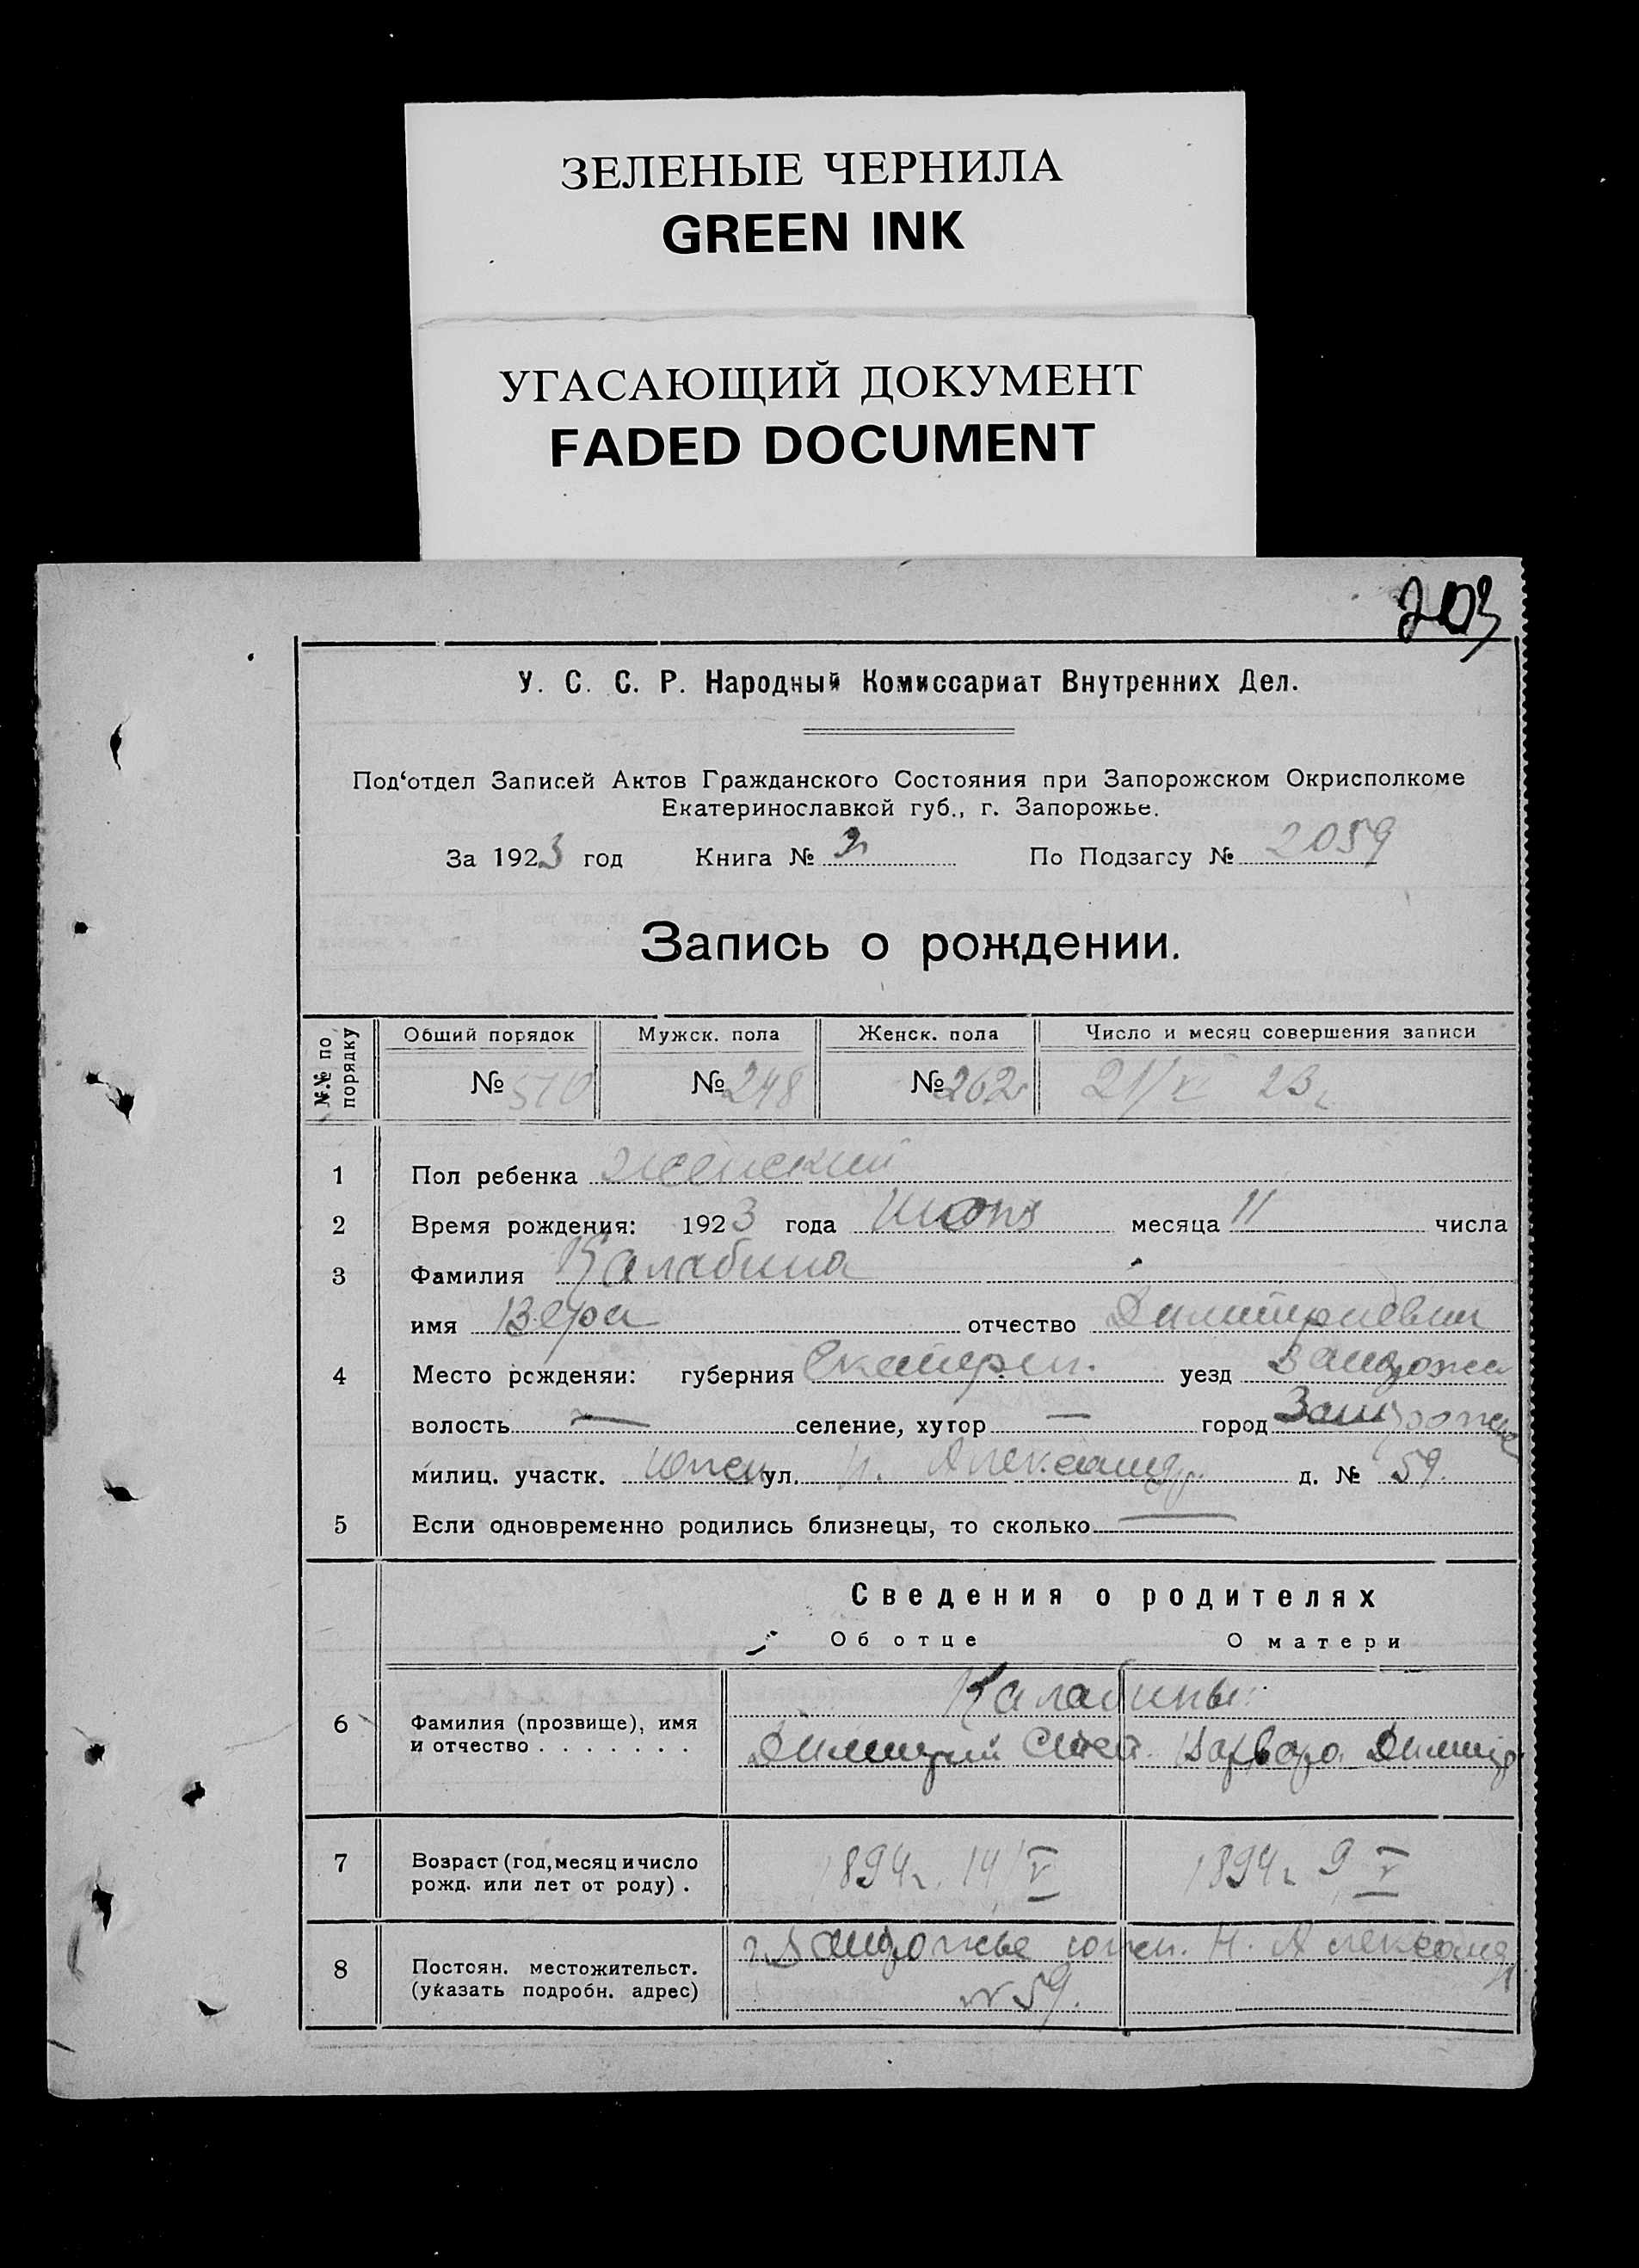 ЗЕЛЕНЫЕ ЧЕРНИЛА
GREEN INK
УГАСАЮЩИЙ ДОКУМЕНТ
FADED DOCUMENT
203
У. С. С. Р. Народный Комиссариат Внутренних Дел.
Под‘отдел Записей Актов Гражданского Состояния при Запорожском Окрисполкоме
Екатеринославкой губ., г. Запорожье.
За 1923 год Книга № 2 По Подзагсу № 2059
Запись о рождении.
№.№ по порядку Общий порядок Мужск. пола Женск. пола Число и месяц совершения записи
№ 510 № 248 № 262 21/VI 23 г.
1 Пол ребенка женский
2 Время рождения: 1923 года Июня месяца 11 числа
3 Фамилия Калабина
имя Вера отчество Димитриевна
4 Место рожденяи: губерния Екатерин. уезд Запорожск
волость — селение, хутор — город Запорожье
милиц. участк. Южн ул. Н. Александр. д. № 59.
5 Если одновременно родились близнецы, то сколько —
Сведения о родителях
Об отце О матери
Калабины
6 Фамилия (прозвище), имя
и отчество . . . . . . . Димитрий Степ. Варвара Димитр.
7 Возраст (год, месяц и число 1894 г. 14/V 1894 г. 9/V
рожд. или лет от роду) .
г. Запорожье южн. Н. Александр
8 Постоян. местожительст.
(указать подробн. адрес) № 59.